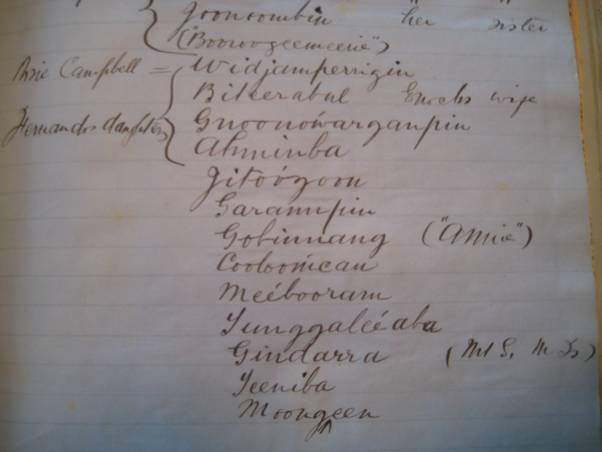 Joonoombin her sister
(Booroogeemeene")
Rosie Campbell = Widjamperrigin
Bitterabul Enochs wife
Fernandos daughters Gnoonówarganpin
Ahminba
Jitoózoon
Garanupin
Gobinnang ("Amie")
Cooloomcan
Meébooram
Yunggaleéaba
Gindarra
Yeeniba
Moongeen